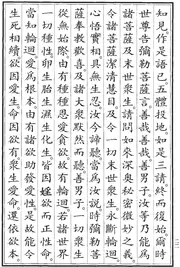 知見作是語已五體投地如是三請終而復始爾時
世尊告彌勒菩薩言善哉善哉善男子汝等乃能為
諸菩薩及末世眾生請問如來深奧秘密微妙之義
令諸菩薩潔清慧目及令一切末世眾生永斷輪迴
心悟實相具無生忍汝今諦聽當為汝說時彌勒菩
薩奉教歡喜及諸大眾默然而聽善男子一切眾生
從無始際由有種種恩愛貪欲故有輪迴若諸世界
一切種性卵生胎生濕生化生皆因婬欲而正性命
當知輪迴愛為根本由有諸欲助發愛性是故能令
生死相續欲因愛生命因欲有眾生愛命還依欲本